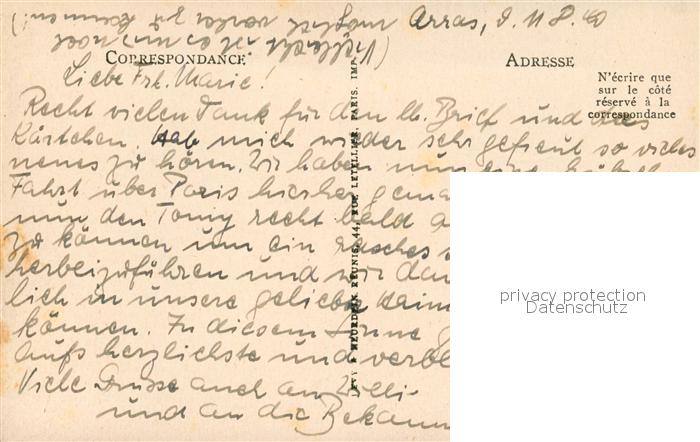 Arras, d. 11.8.40
CORRESPONDANCE
ADRESSE
N'écrire que
sur le côté
réservé à la
correspondance
Liebe Frl. Marie!
Recht vielen Dank für den lb. Brief und das
Kärtchen. Hab mich wieder sehr gefreut so vieles
neues zu hören. Wir haben nun eine
Fahrt über Paris hierher
nun den Tommy recht bald
zu können um ein rasches
herbeizuführen und wir
lich in unsere geliebte Heim
können. In diesem Sinne
aufs herzlichste und verb
Viele Grüsse auch an Willi
und an die Bekann
LEVY & NEURDEIN REUNIS, 44, RUE LETELLIER, PARIS. IMP.
privacy protection
Datenschutz